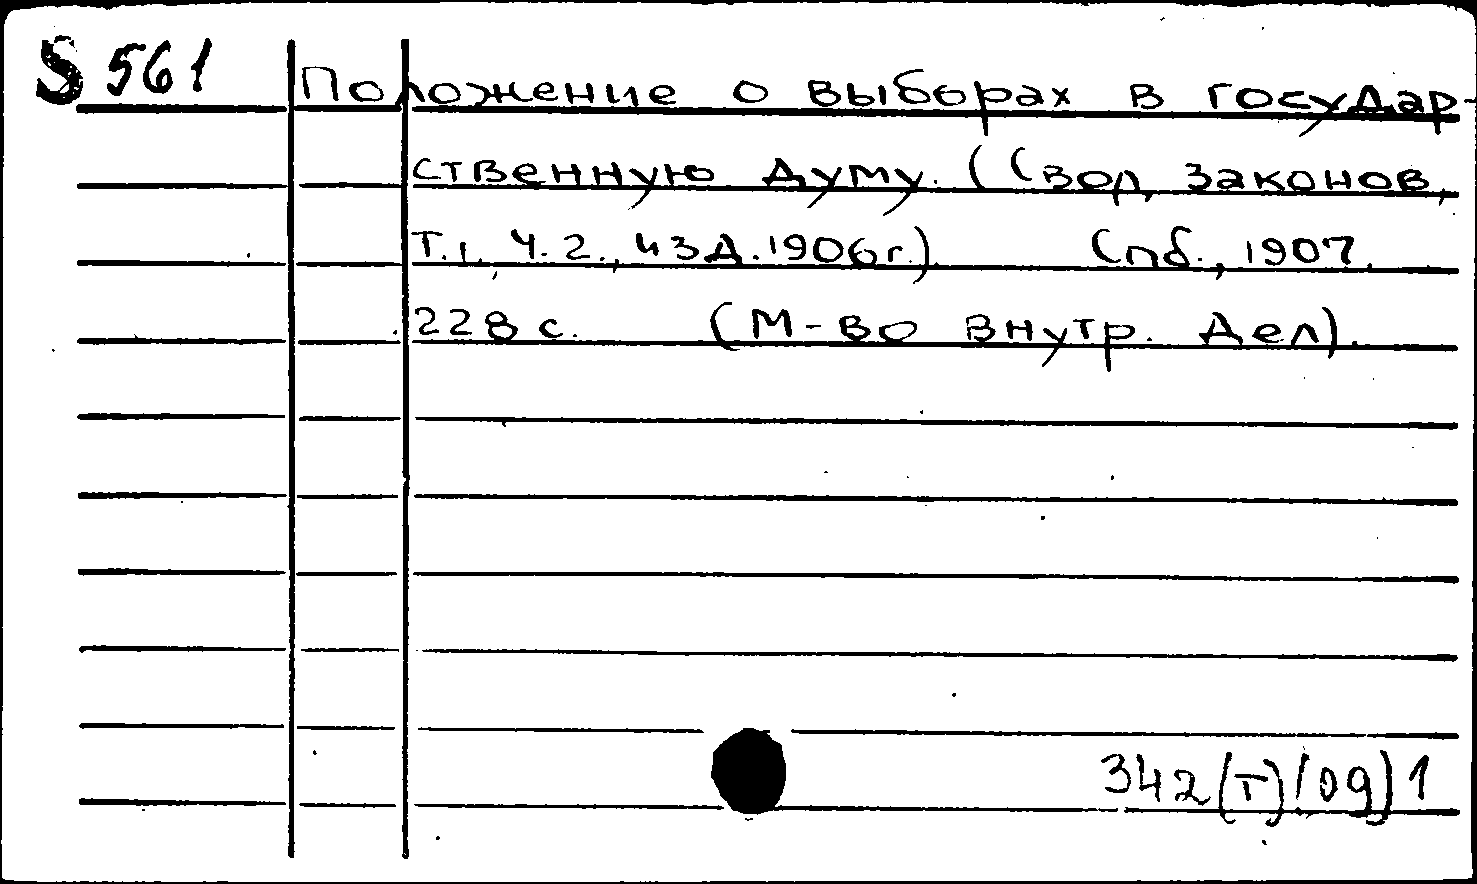 S 561
Положение о выборах в государ-
ственную думу. (Свод законов,
Т.1, ч.2., изд.1906г.) Спб., 1907.
228 с. (М-во внутр. дел).
342(Т)(09)1